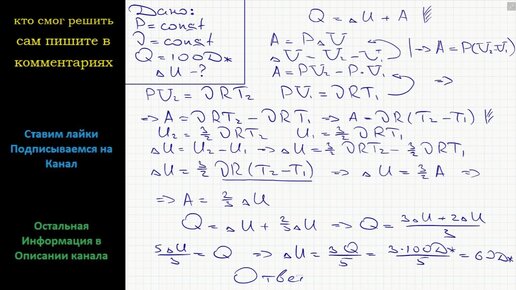 кто смог решить
сам пишите в
комментариях
Ставим лайки
Подписываемся на
Канал
Остальная
Информация в
Описании канала
Дано:
P = const
J = const
Q = 100 Дж
ΔU - ?
Q = ΔU + A
A = PΔU
ΔU = U₂ - U₁
=> A = P(U₂-U₁)
A = PU₂ - P·U₁ =>
PU₂ = JRT₂ PU₁ = JRT₁
=> A = JRT₂ - JRT₁ => A = JR(T₂-T₁)
U₂ = 3/2 JRT₂ U₁ = 3/2 JRT₁
ΔU = U₂ - U₁ => ΔU = 3/2 JRT₂ - 3/2 JRT₁
ΔU = 3/2 JR(T₂-T₁) => ΔU = 3/2 A =>
=> A = 2/3 ΔU
Q = ΔU + 2/3 ΔU => Q = (3ΔU + 2ΔU)/3
5ΔU/3 = Q => ΔU = 3Q/5 = 3·100Дж/5 = 60Дж
Отве